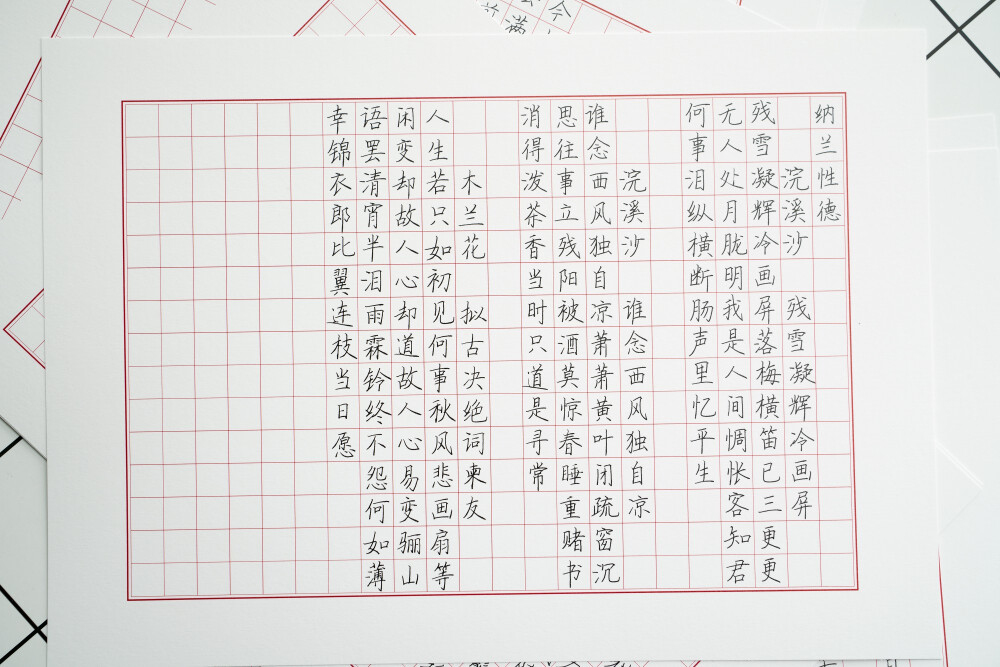 纳兰性德
浣溪沙 残雪凝辉冷画屏
残雪凝辉冷画屏落梅横笛已三更更
无人处月胧明我是人间惆怅客知君
何事泪纵横断肠声里忆平生
浣溪沙 谁念西风独自凉
谁念西风独自凉萧萧黄叶闭疏窗沉
思往事立残阳被酒莫惊春睡重赌书
消得泼茶香当时只道是寻常
木兰花 拟古决绝词柬友
人生若只如初见何事秋风悲画扇等
闲变却故人心却道故人心易变骊山
语罢清宵半泪雨霖铃终不怨何如薄
幸锦衣郎比翼连枝当日愿
今
满